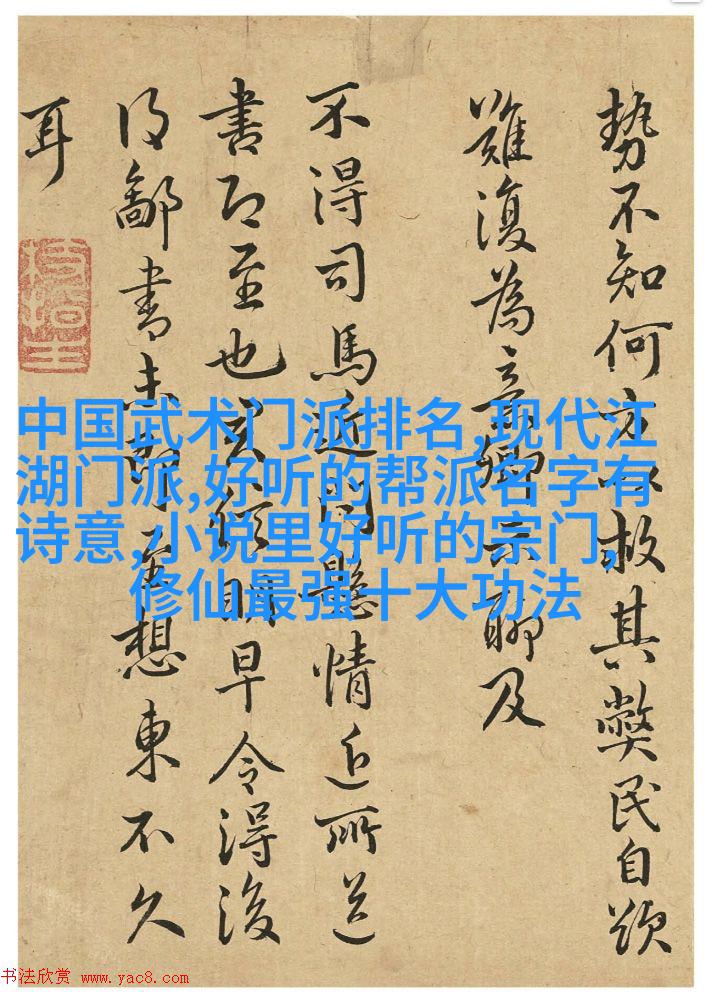 勢不知何方以救其弊民自
難復為意卿示聊及
不得司馬近問懸情近所送
書即至也得後早令
得鄙書未想東不久
耳
中国武术门派排名,现代江
湖门派,好听的帮派名字有
诗意,小说里好听的宗门,
修仙最强十大功法
书法欣赏 www.yac8.com